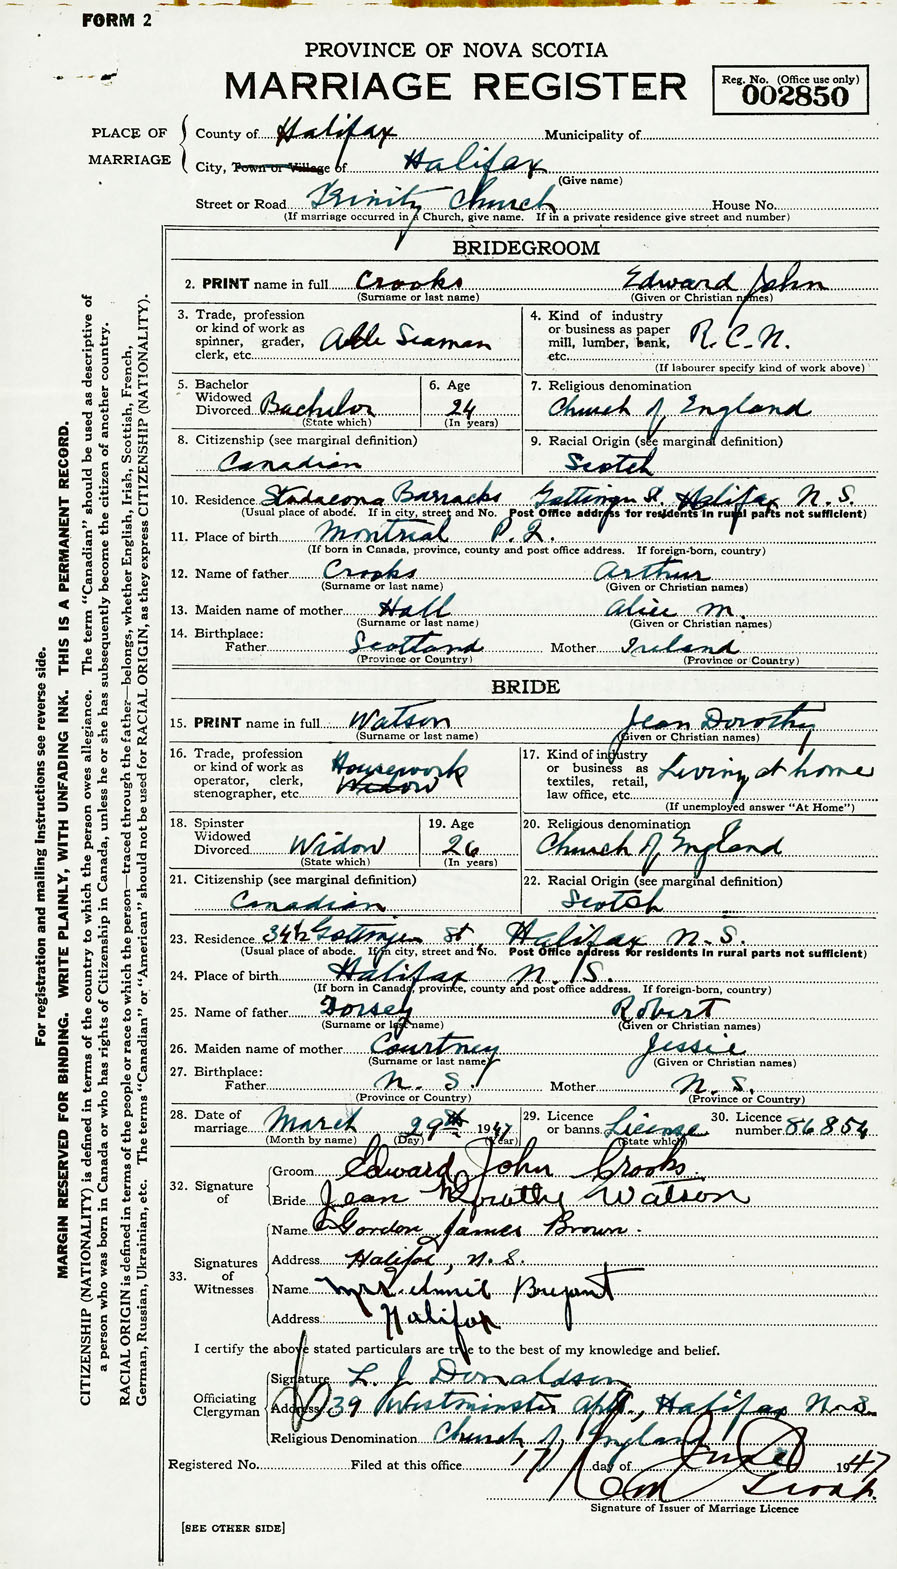 FORM 2
PROVINCE OF NOVA SCOTIA
MARRIAGE REGISTER
Reg. No. (Office use only)
002850
PLACE OF MARRIAGE
County of Halifax Municipality of
City, Town or Village of Halifax
(Give name)
Street or Road Trinity Church House No.
(If marriage occurred in a Church, give name. If in a private residence give street and number)
BRIDEGROOM
2. PRINT name in full Crooks Edward John
(Surname or last name) (Given or Christian names)
3. Trade, profession or kind of work as spinner, grader, clerk, etc. Able Seaman
4. Kind of industry or business as paper mill, lumber, bank, etc. R.C.N.
(If labourer specify kind of work above)
5. Bachelor Widowed Divorced Bachelor
(State which)
6. Age 24
(In years)
7. Religious denomination
Church of England
8. Citizenship (see marginal definition)
Canadian
9. Racial Origin (see marginal definition)
Scotch
10. Residence Stadacona Barracks Gottingen St. Halifax N.S.
(Usual place of abode. If in city, street and No. Post Office address for residents in rural parts not sufficient)
11. Place of birth Montrial P.Q.
(If born in Canada, province, county and post office address. If foreign-born, country)
12. Name of father Crooks Arthur
(Surname or last name) (Given or Christian names)
13. Maiden name of mother Hall Alice M
(Surname or last name) (Given or Christian names)
14. Birthplace:
Father Scotland Mother Ireland
(Province or Country) (Province or Country)
BRIDE
15. PRINT name in full Watson Jean Dorothy
(Surname or last name) (Given or Christian names)
16. Trade, profession or kind of work as operator, clerk, stenographer, etc. Housework Widow
17. Kind of industry or business as textiles, retail, law office, etc. Living at home
(If unemployed answer "At Home")
18. Spinster Widowed Divorced Widow
(State which)
19. Age 26
(In years)
20. Religious denomination
Church of England
21. Citizenship (see marginal definition)
Canadian
22. Racial Origin (see marginal definition)
Scotch
23. Residence 34½ Gottingen St. Halifax N.S.
(Usual place of abode. If in city, street and No. Post Office address for residents in rural parts not sufficient)
24. Place of birth Halifax N.S.
(If born in Canada, province, county and post office address. If foreign-born, country)
25. Name of father Dorsey Robert
(Surname or last name) (Given or Christian names)
26. Maiden name of mother Courtney Jessie
(Surname or last name) (Given or Christian names)
27. Birthplace:
Father N.S. Mother N.S.
(Province or Country) (Province or Country)
28. Date of marriage March 29th 1947
(Month by name) (Day) (Year)
29. Licence or banns License
(State which)
30. Licence number 86854
32. Signature of
Groom Edward John Crooks.
Bride Jean Dorothy Watson
33. Signatures of Witnesses
Name Gordon James Brown.
Address Halifax, N.S.
Name Mrs. Bryant
Address Halifax
I certify the above stated particulars are true to the best of my knowledge and belief.
Officiating Clergyman
Signature L. J. Donaldson
Address 39 Westminster Apt., Halifax N.S.
Religious Denomination Church of England
Registered No. Filed at this office 17 day of June 1947
Signature of Issuer of Marriage Licence
[SEE OTHER SIDE]
For registration and mailing instructions see reverse side.
MARGIN RESERVED FOR BINDING. WRITE PLAINLY, WITH UNFADING INK. THIS IS A PERMANENT RECORD.
CITIZENSHIP (NATIONALITY) is defined in terms of the country to which the person owes allegiance. The term "Canadian" should be used as descriptive of
a person who was born in Canada or who has rights of Citizenship in Canada, unless he or she has subsequently become the citizen of another country.
RACIAL ORIGIN is defined in terms of the people or race to which the person—traced through the father—belongs, whether English, Irish, Scottish, French,
German, Russian, Ukrainian, etc. The terms "Canadian" or "American" should not be used for RACIAL ORIGIN, as they express CITIZENSHIP (NATIONALITY).